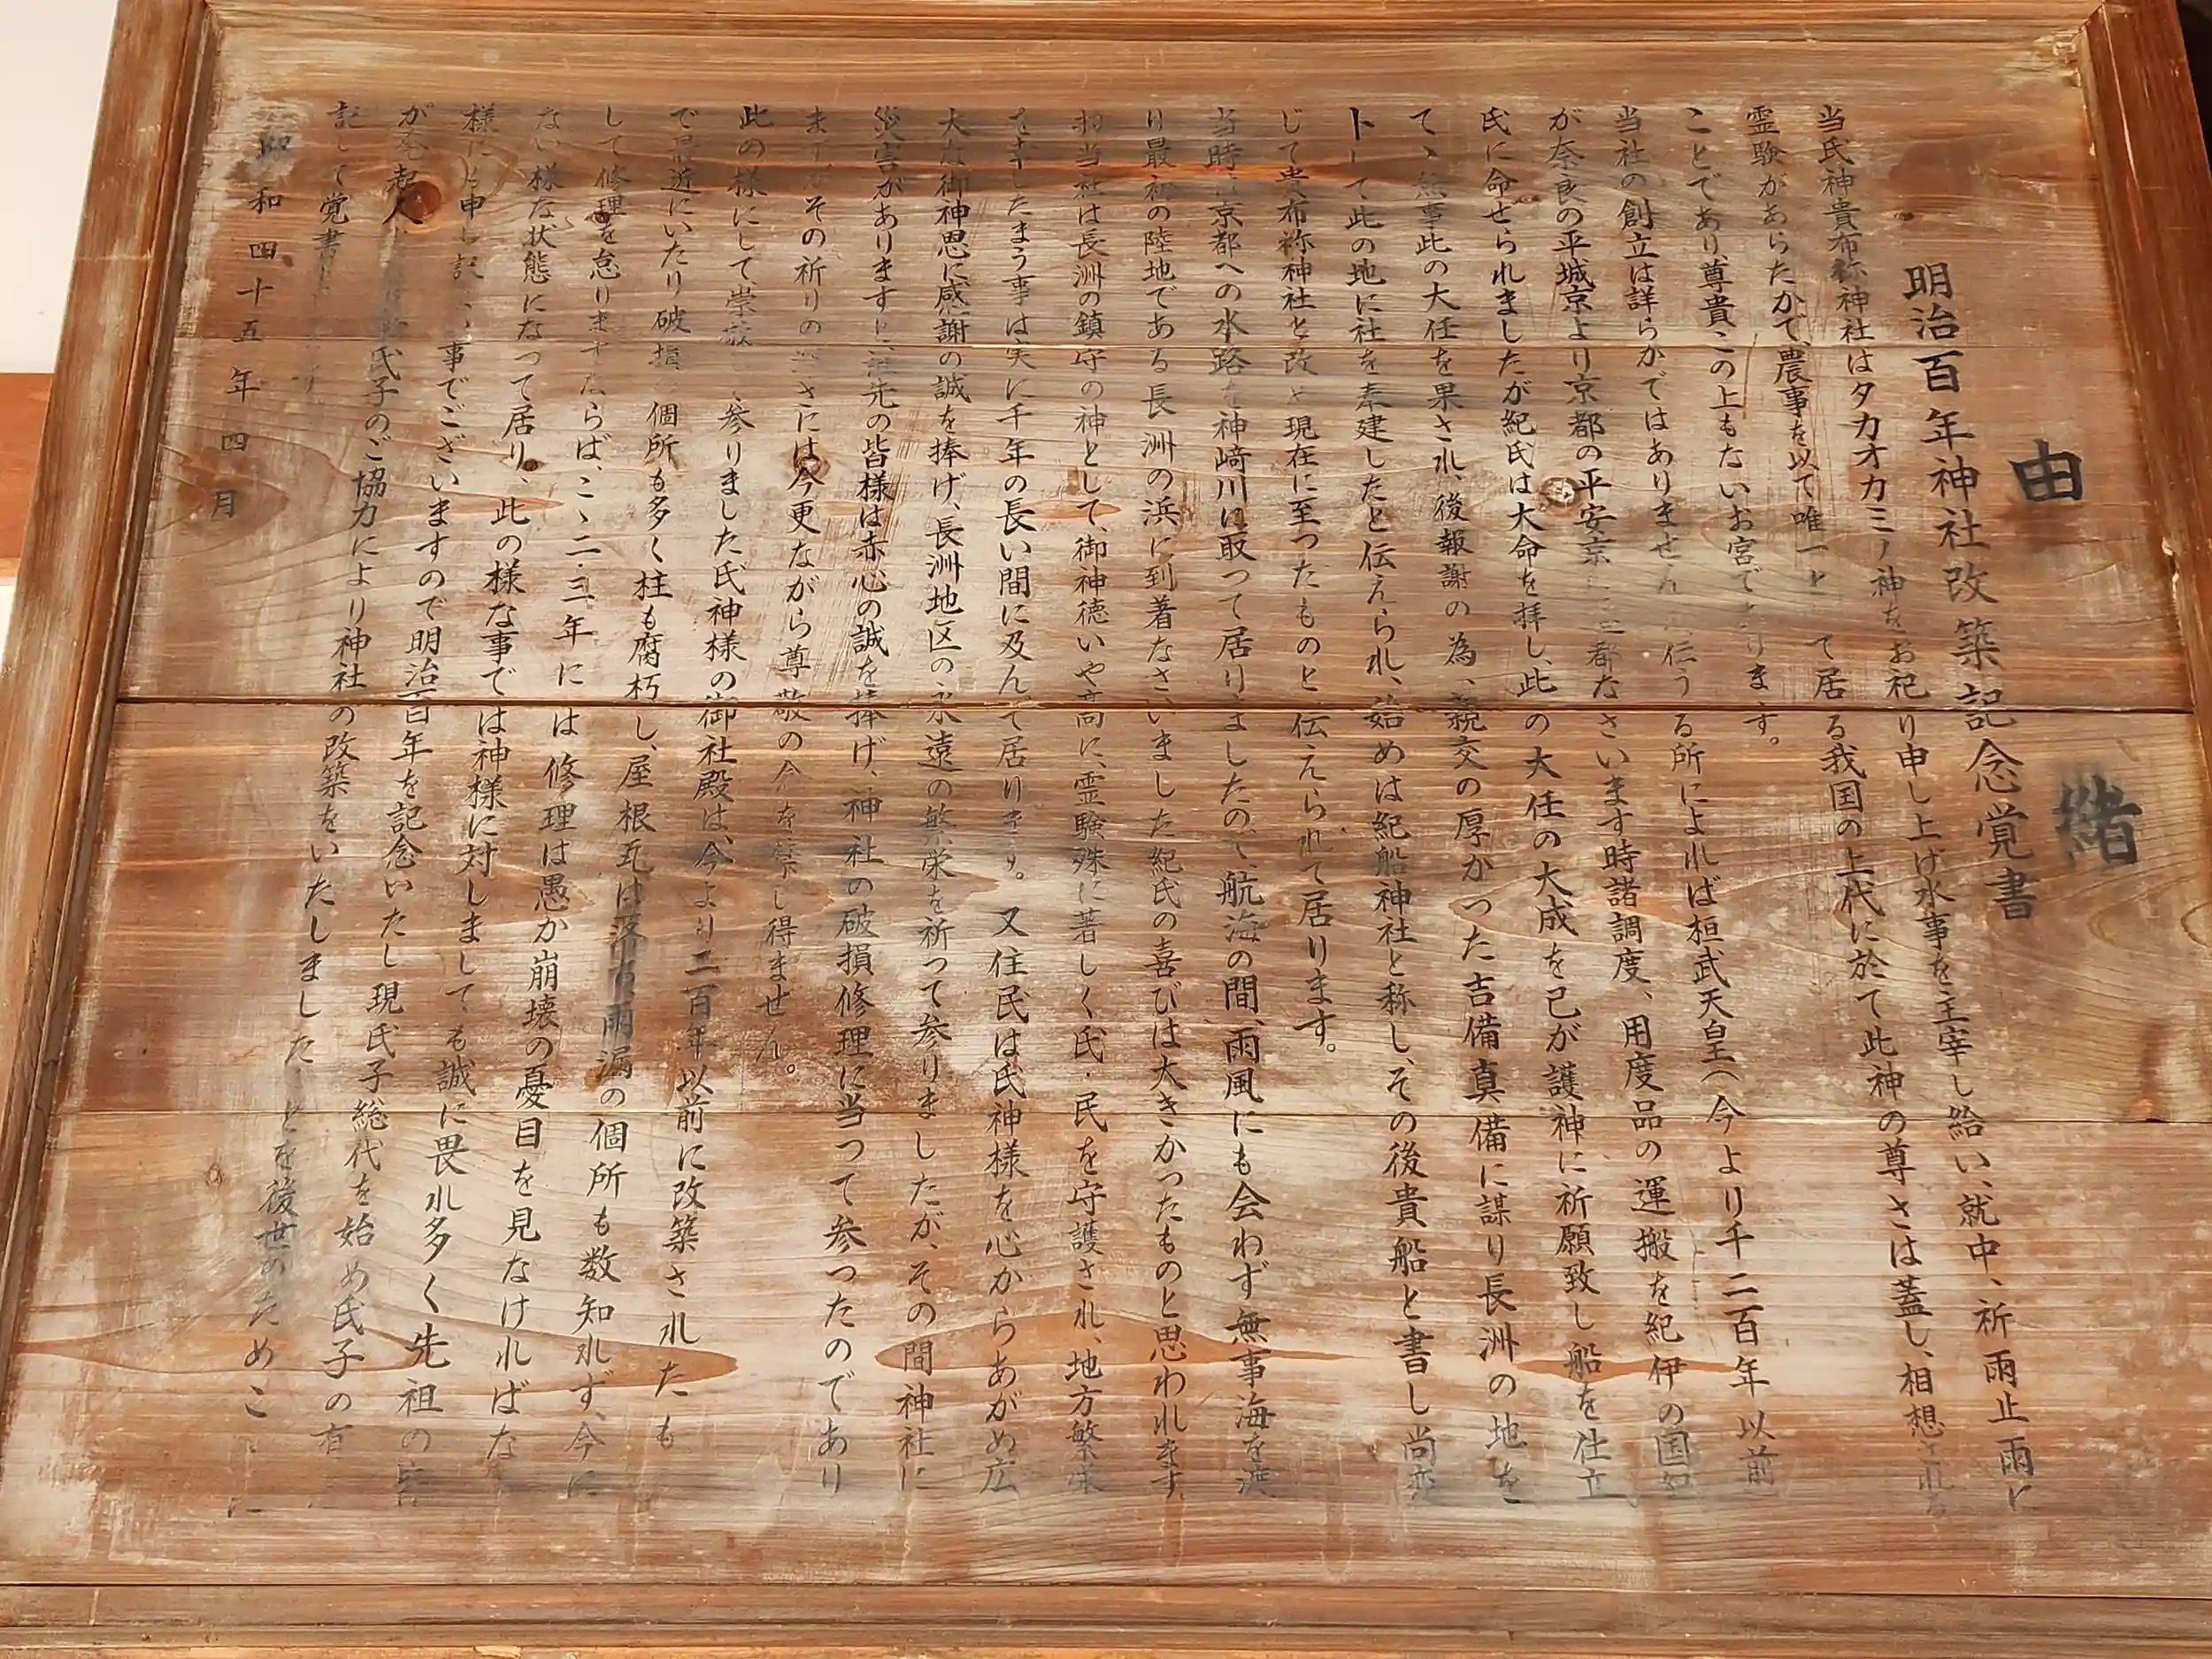 由緒
明治百年神社改築記念覚書
当氏神貴布祢神社はタカオカミノ神をお祀り申し上げ水事を主宰し給い、就中、祈雨止雨に
霊験があらたかで、農事を以て唯一と て居る我国の上代に於て此神の尊さは蓋し、相想される
ことであり、尊貴この上もないお宮であります。
当社の創立は詳らかではありません 伝うる所によれば桓武天皇(今より千二百年以前
が奈良の平城京より京都の平安京に 都なさいます時諸調度、用度品の運搬を紀伊の国紀
氏に命せられましたが紀氏は大命を拝し、此の大任の大成を己が護神に祈願致し船を仕立
て、無事此の大任を果され、後報謝の為、親交の厚かった吉備真備に謀り長洲の地を
卜して此の地に社を奉建したと伝えられ、始めは紀船神社と称し、その後貴船と書し尚変
じて貴布祢神社と改め現在に至つたものと伝えられて居ります。
当時は京都への水路を神崎川に取って居りましたので、航海の間、雨風にも会わず無事海を渡
り最初の陸地である長洲の浜に到着なさいました紀氏の喜びは大きかつたものと思われます
当社は長洲の鎮守の神として、御神徳いや高に、霊験殊に著しく氏・民を守護され、地方繁栄
をなしたまう事は実に千年の長い間に及んで居ります。 又住民は氏神様を心からあがめ広
大な御神恩に感謝の誠を捧げ、長洲地区の永遠の繁栄を祈って参りましたが、その間神社に
災害がありますと 先の皆様は赤心の誠を捧げ、神社の破損修理に当つて参つたのであり
ます その祈りの さには今更ながら尊敬の念を禁じ得ません。
此の様にして、崇敬 参りました氏神様の御社殿は、今より二百年以前に改築されたも
で最近にいたり破損 個所も多く柱も腐朽し、屋根瓦は落 雨漏の個所も数知れず、今に
して修理を怠りますならば、こゝ二・三年には修理は愚か崩壊の憂目を見なければな
ない様な状態になって居り、此の様な事では神様に対しましても誠に畏れ多く先祖の皆
様に 申し訳 事でございますので明治百年を記念いたし現氏子総代を始め氏子の有
が発起人 氏子のご協力により神社の改築をいたしました とを後世のためこゝに
記して覚書
昭和四十五年四月